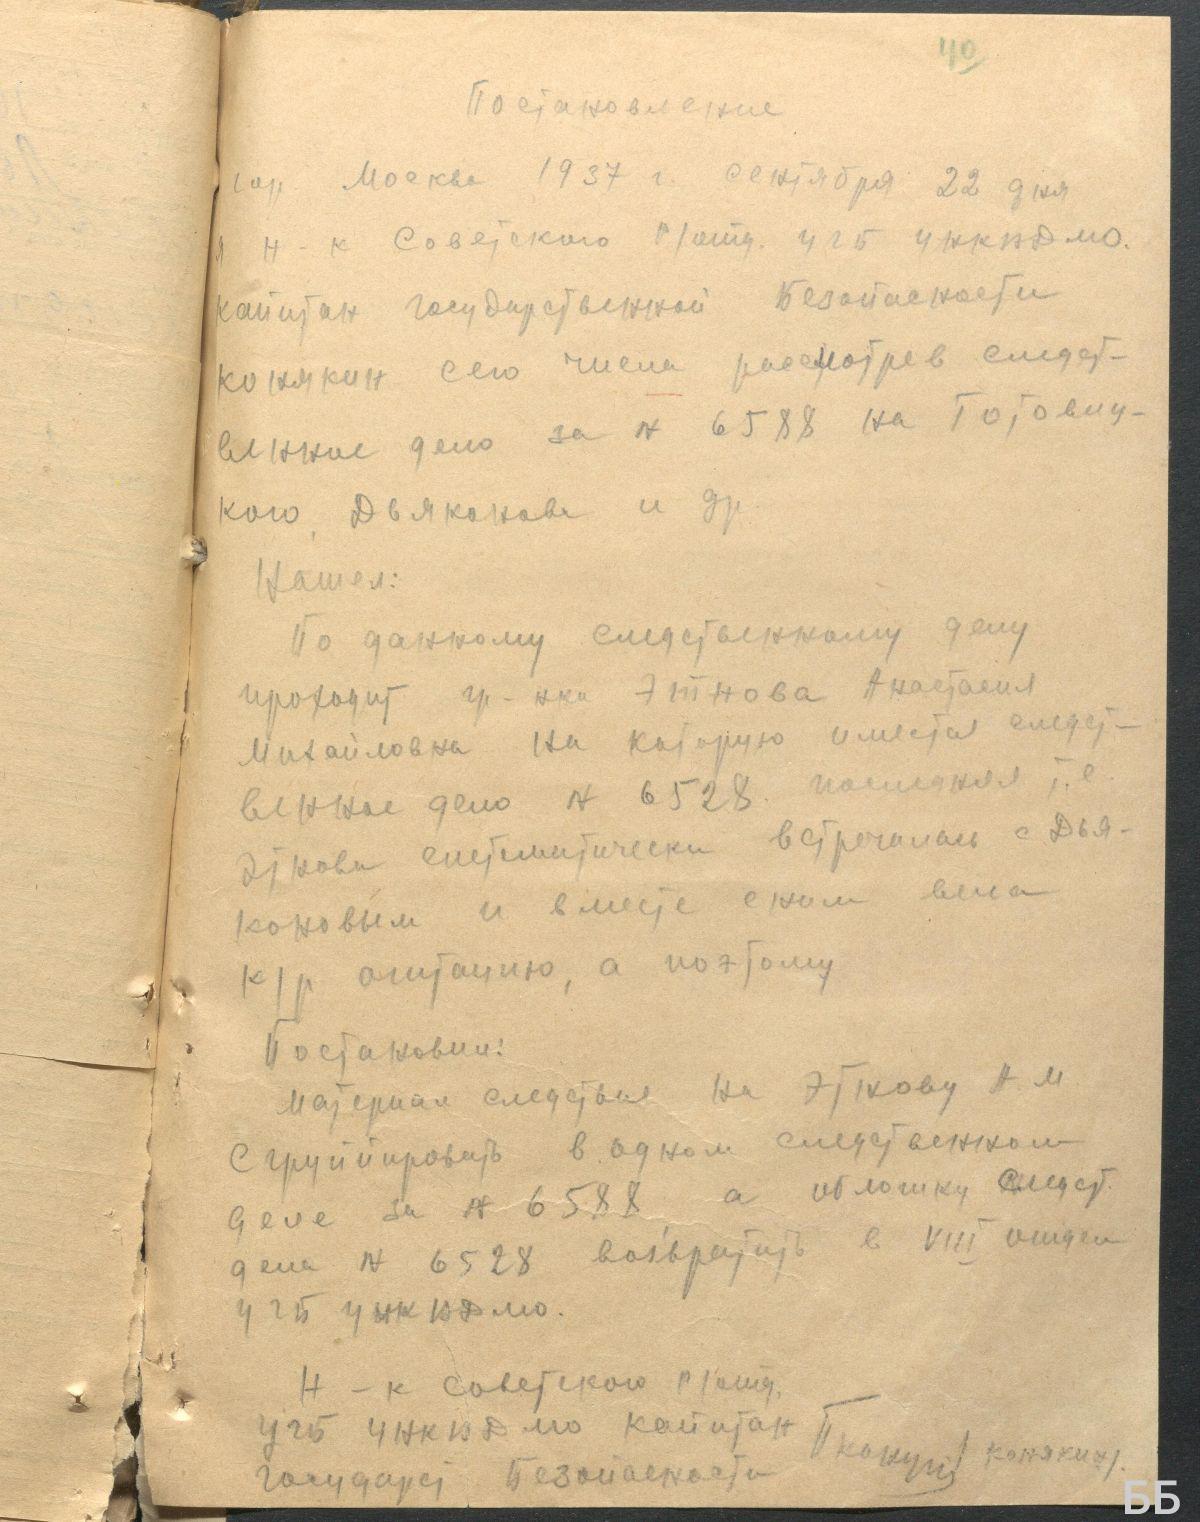 40
Постановление
гор. Москва 1937 г. сентября 22 дня
Я н-к Советского Р/отд. УГБ УНКВД МО.
капитан государственной Безопасности
Конякин сего числа рассмотрев следст-
венное дело за № 6588 на Готовиц-
кого, Дьяконова и др
Нашел:
По данному следственному делу
проходит гр-нка Этнова Анастасия
Михайловна на которую имеется следст-
венное дело № 6528. последняя т.е.
Этнова систематически встречалась с Дья-
коновым и вместе с ним вела
к/р агитацию, а поэтому
Постановил:
Материал следствия на Этнову А.М
сгруппировать в одном следственном
деле за № 6588, а обложку следст.
дела № 6528 возвратить в VIII отдел
УГБ УНКВД МО.
Н-к Советского Р/отд.
УГБ УНКВД МО капитан
государст Безопасности /Конякин/.
ББ